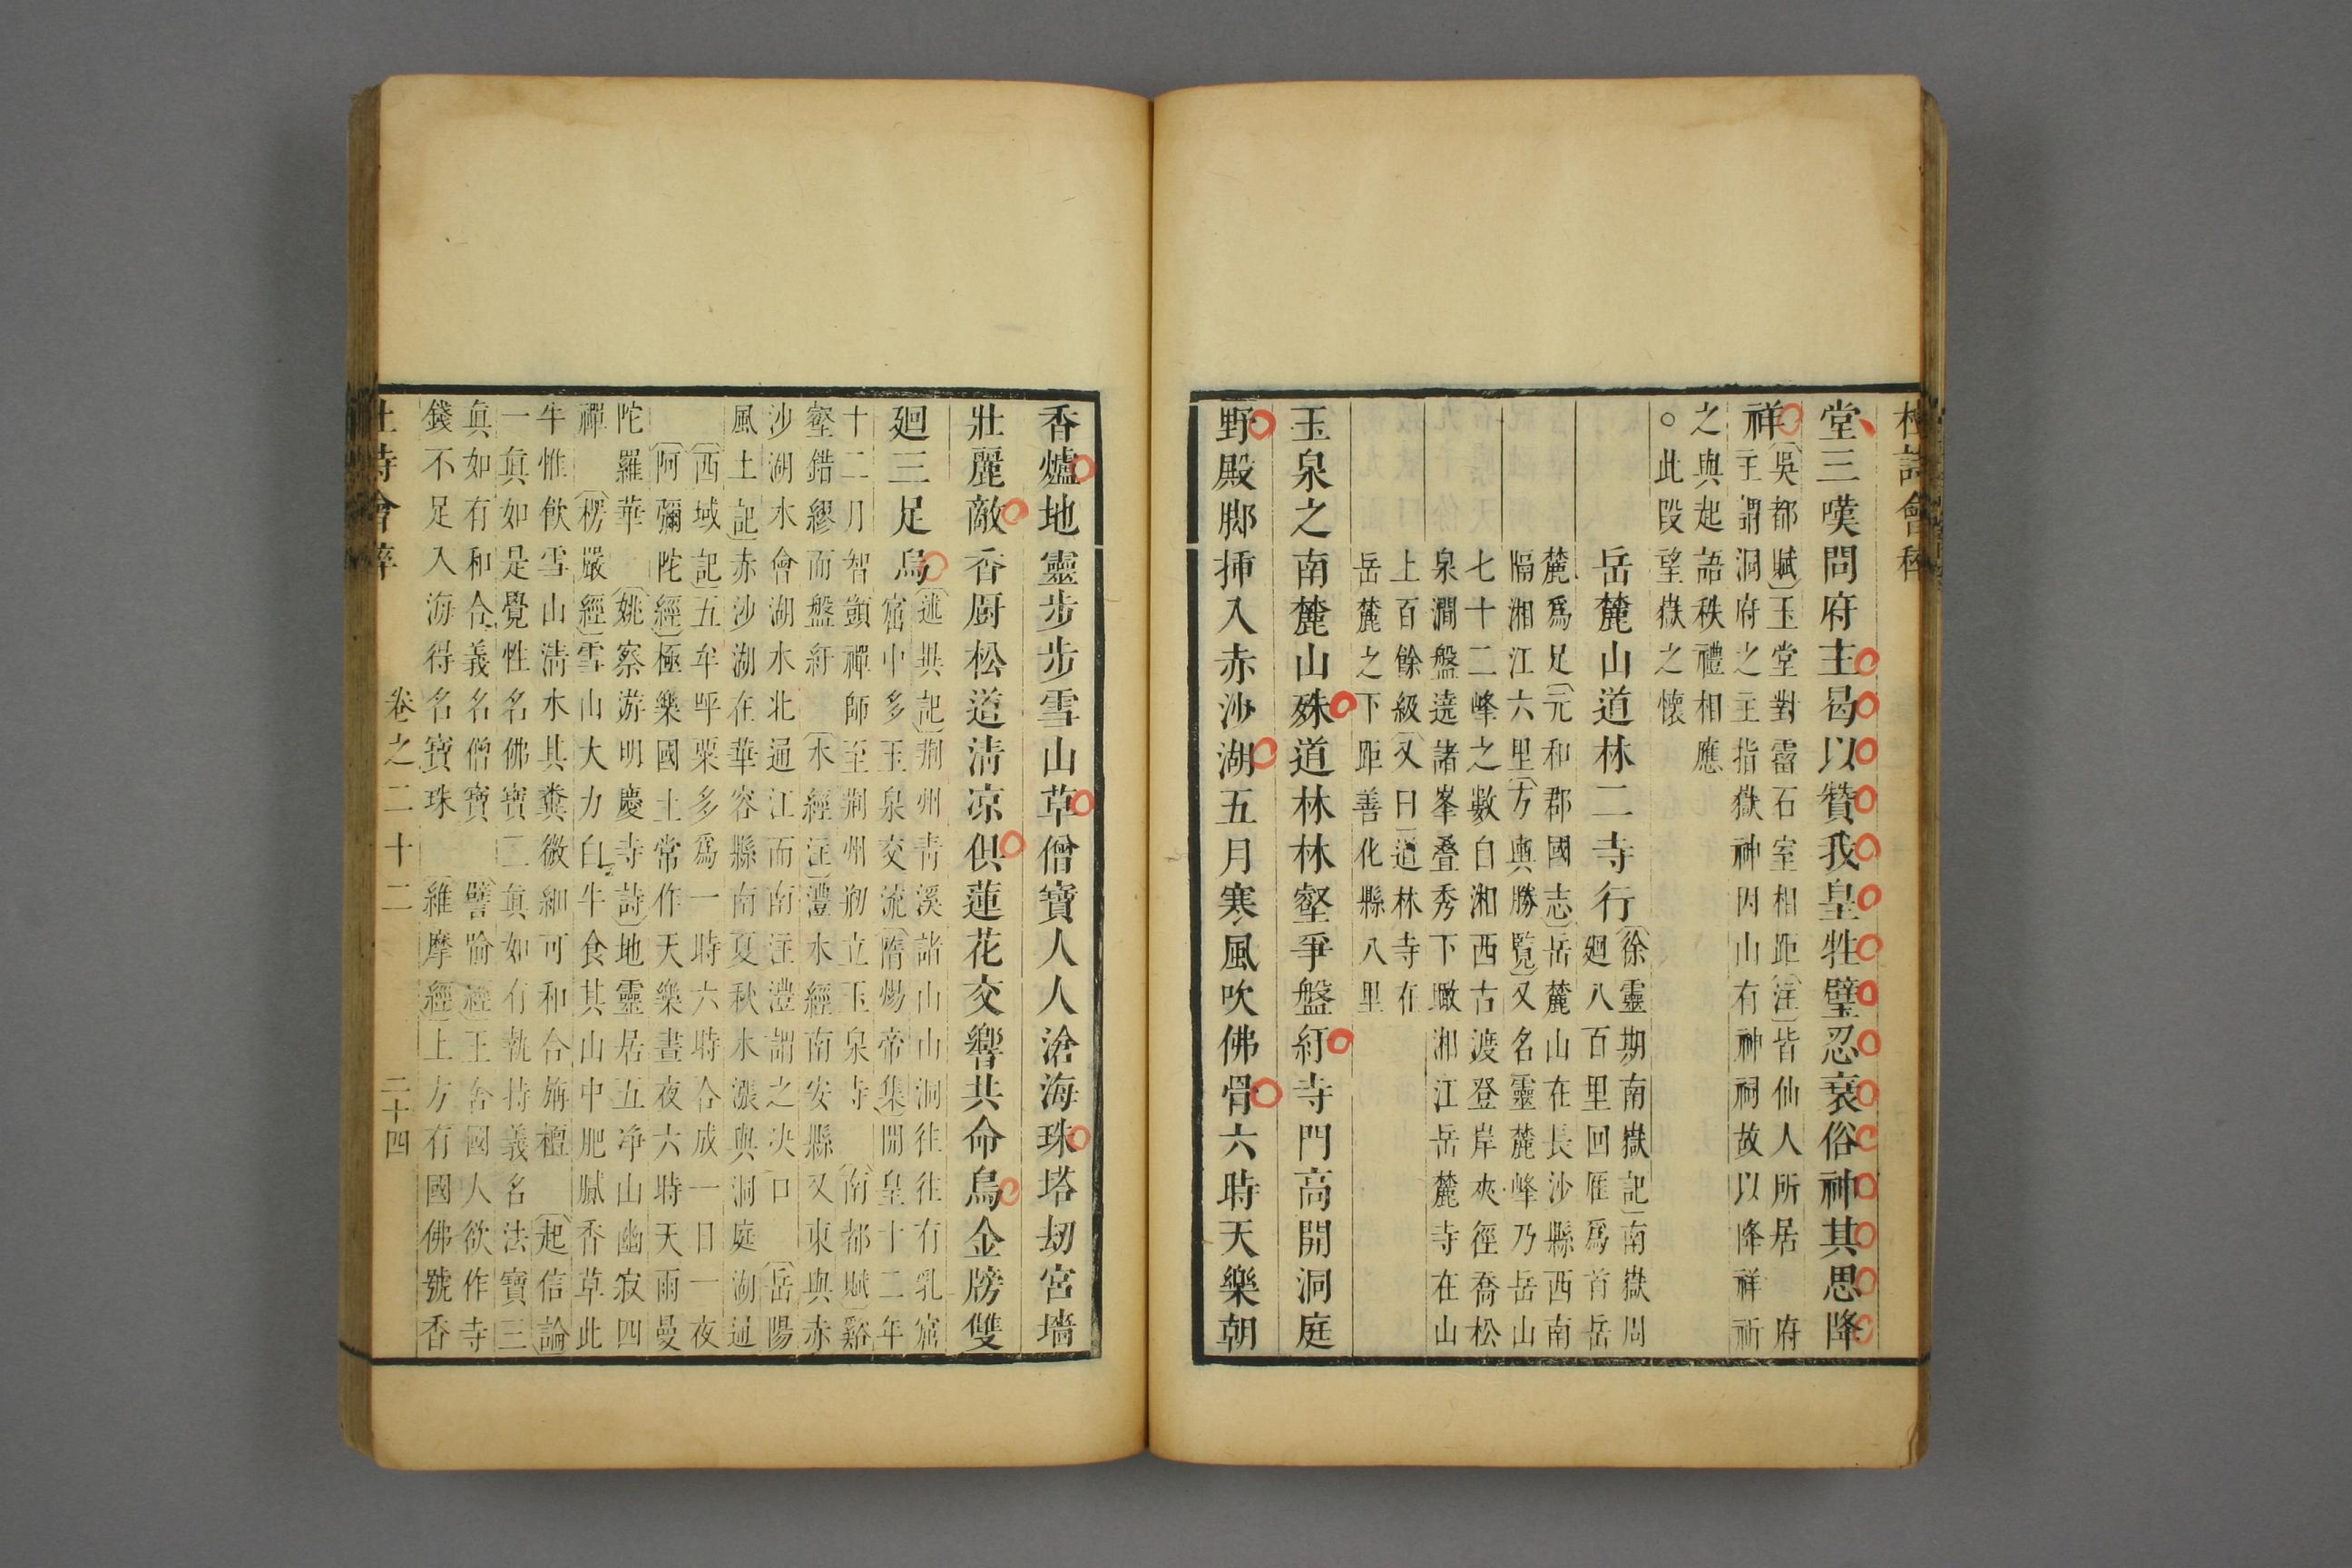 杜詩會稡
堂三嘆問府主曷以贊我皇牲璧忍衰俗神其思降
祥
吳都賦玉堂對霤石室相距注皆仙人所居 府
主謂洞府之主指嶽神因山有神祠故以降祥祈
之與起語秩禮相應
○此段望嶽之懷
岳麓山道林二寺行
徐靈期南嶽記南嶽周
廻八百里回雁爲首岳
麓爲足元和郡國志岳麓山在長沙縣西南
隔湘江六里方輿勝覽又名靈麓峰乃岳山
七十二峰之數自湘西古渡登岸夾徑喬松
泉澗盤遶諸峯叠秀下瞰湘江岳麓寺在山
上百餘級又曰道林寺在
岳麓之下距善化縣八里
玉泉之南麓山殊道林林壑爭盤紆寺門高開洞庭
野殿脚揷入赤沙湖五月寒風吹佛骨六時天樂朝
香爐地靈步步雪山草僧寶人人滄海珠塔劫宮墻
壯麗敵香厨松道淸凉俱蓮花交響共命鳥金牓雙
廻三足烏
述異記荆州靑溪諸山山洞往往有乳窟
窟中多玉泉交流隋煬帝集開皇十二年
十二月智顗禪師至荆州剏立玉泉寺 南都賦谿
壑錯繆而盤紆 水經注澧水經南安縣又東與赤
沙湖水會湖水北通江而南注澧謂之决口 岳陽
風土記赤沙湖在華容縣南夏秋水漲與洞庭湖通
西域記五牟呼栗多爲一時六時合成一日一夜
阿彌陀經極樂國土常作天樂晝夜六時天雨曼
陀羅華 姚察游明慶寺詩地靈居五净山幽寂四
禪 楞嚴經雪山大力白牛食其山中肥膩香草此
牛惟飮雪山淸水其糞微細可和合旃檀 起信論
一眞如是覺性名佛寶二眞如有執持義名法寶三
眞如有和合義名僧寶 譬喻經王舍國人欲作寺
錢不足入海得名寶珠 維摩經上方有國佛號香
杜詩會稡 卷之二十二 二十四